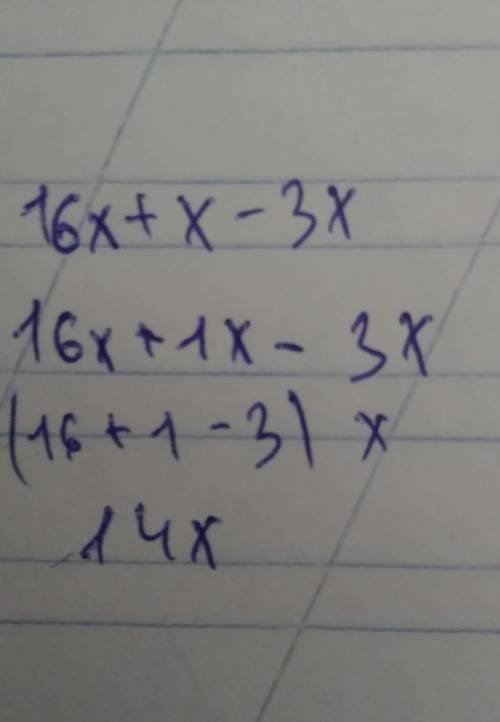 16x + x - 3x
16x + 1x - 3x
(16 + 1 - 3) x
14x